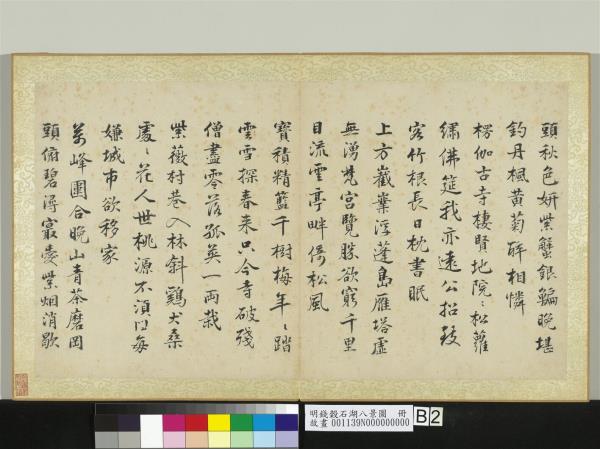 頭秋色妍紫蟹銀鯿晚堪
釣丹楓黃菊醉相憐
楞伽古寺棲賢地院〻松蘿
繡佛筵我亦遠公招致
客竹根長日枕書眠
上方巀嶪浮蓬島雁塔虛
無湧梵宮覽勝欲窮千里
目流雲亭畔倚松風
寶積精藍千樹梅年〻踏
雲雪探春来只今寺破殘
僧盡零落孤英一兩栽
紫薇村巷入林斜鷄犬桑
處〻花人世桃源不須問每
嫌城市欲移家
萬峰圍合晚山青茶磨岡
頭俯碧潯最愛紫烟消歇
明錢穀石湖八景圖 冊
故畫 001139N000000000
B2